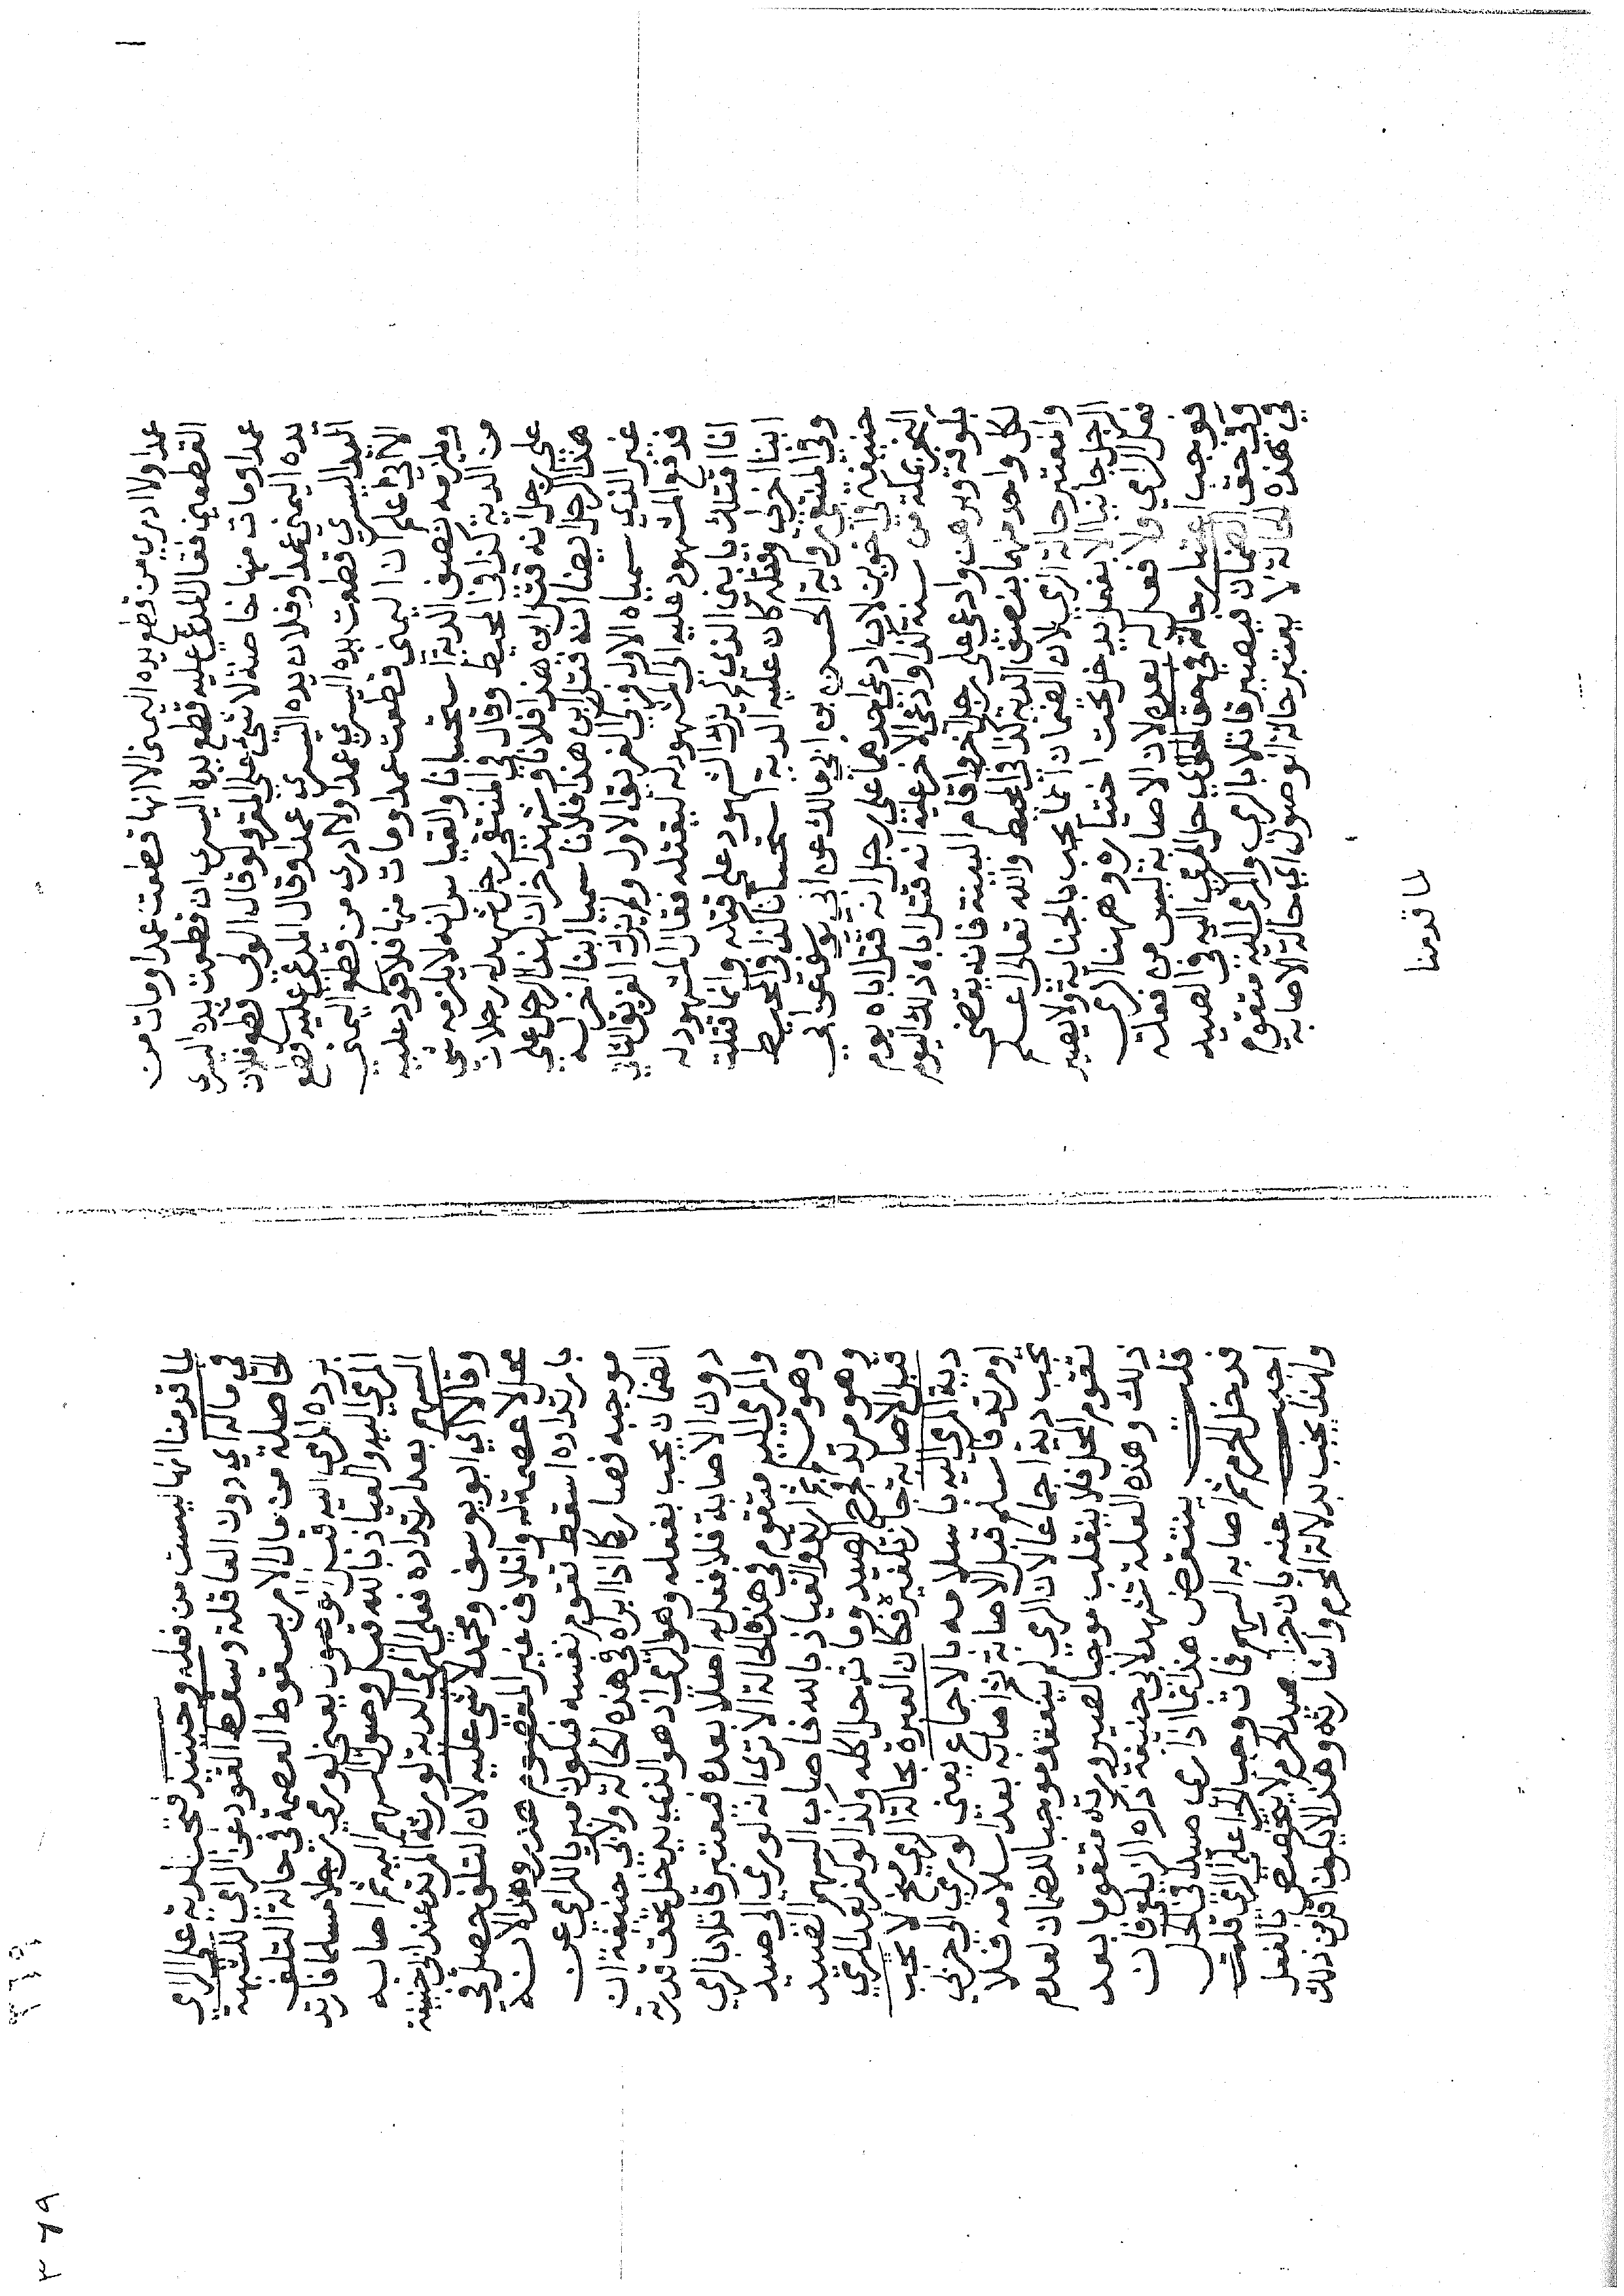 عمدا ولا ادري من قطع يده اليمنى الا انها قطعت عمدا ومات من
القطعين فقال المدعى عليه قطع يده اليسرى ان قطعت يده اليسرى
عمدا ومات منها خاصة لا شي على المقر ولو قال الولي قطع فلان
يده اليمنى عمدا وفلان يده اليسرى عمدا وقال المدعى عليه قطع
اليد اليسرى قطعت يده اليسرى عمدا ولا ادري من قطع اليمنى
الا اني اعلم ان اليمنى قطعت عمدا ومات منها فلا قود عليه
ويلزمه نصف الدية استحسانا والقياس انه لا يلزمه شي
من الدية كذا في المحيط وقال في المنتقى رجل شهد له رجلان
على رجل انه قتل ابن هذا فلانا وشهد اخران لهذا الرجل على
هذا الرجل ايضا انه قتل ابن هذا فلانا سميا ابنا اخر له
غير الذي سمياه الاول فزكي الفريق الاول ولم يزك الفريق الثاني
فدفع المشهود عليه الى المشهود له ليقتله فقال المشهود له
انا اقتلك بابني الذي لم يزك الشهود على قتله وانما قتلت
ابنا اخر لي وقتله كان عليه الدية استحسانا كذا في المحيط
وفي المنتقى رواية الحسن بن ابي مالك عن ابي يوسف عن ابي
حنيفة في اخوين لاب ادعى احدهما على رجل انه قتل اباه يوم
النحر بمكة من سنة كذا وادعى الاخر عليه انه قتل اباه ذلك اليوم
بكوفة وبرهن وادعى على رجل اخر واقام البينة فانه يقضى
لكل واحد منهما بنصف الدية كذا في المحيط والله تعالى اعلم
والمعتبر حالة الرمي لان الضمان انما يجب بالجناية ولا يصير
الرجل جانيا الا بفعل يدخل تحت اختياره وههنا الرمي
فعل الرامي ولا فعل له بعده لان الاصابة ليس من فعله
فوجب اعتبار حالة في حق الحل اي حل المرمي اليه في الصيد
وفي حق الضمان فيصير قاتلا بالرمي والمرمي اليه متقوم
في هذه الحالة لا يعتبر حالة الوصول اي حالة الاصابة
لما قدمنا
لما قدمنا انها ليست من فعله وحينئذ فتجب الدية على الرامي
في ماله اي دون العاقلة وسقط القود عن الرامي للشبهة
الحاصلة من مال الامر بسقوط العصمة في حالة التلف
بردة المرمي اليه قبل الوصول يعني لو رمى رجلا مسلما فارتد
المرمي اليه والعياذ بالله قبل وصول السهم اليه ثم اصابه
السهم بعد ارتداده فعلى الرامي الدية لورثة المرتد عند ابي حنيفة
وقالا اي ابو يوسف ومحمد لا شي عليه لان التلف حصل في
محل لا عصمة له واتلاف غير المعصوم هدر وهذا لانه
بارتداده اسقط تقوم نفسه فيكون مبريا للرامي عن
موجبه فصار كما اذا ابراه في هذه الحالة ولابي حنيفة ان
الضمان يجب بفعله وهو الرمي اذ هو الذي يدخل تحت قدرته
دون الاصابة فلا فعل له اصلا بعده فيعتبر قاتلا بالرمي
والمرمي اليه متقوم في هذه الحالة الا ترى انه لو رمى الى صيد
وهو مسلم ثم ارتد والعياذ بالله فاصاب السهم الصيد
وهو مرتد فجرح الصيد ومات حل اكله وكذا لو كفر بعد الرمي
قبل الاصابة جاز تكفيره فكان العبرة بحالة الرمي فح لا يجب
دية المرمي اليه باسلامه بالاجماع يعني لو رمى الى حربي
او مرتد فاسلم قبل الاصابة ثم اصابه بعد اسلامه فلا
يجب دية اجماعا لان الرمي لم ينعقد موجبا للضمان لعدم
تقوم المحل فلا ينقلب موجبا لصيرورته متقوما بعد
ذلك وهذه العلة تشهد لابي حنيفة ذكره الزيلعي فان
قلت ينتقض هذا بما اذا رمى صيدا في الحل
فدخل الحرم ثم اصابه السهم فمات وجب الجزا على الرامي قلت
اجيب عنه بان جزا صيد الحرم لا يختص بالفعل
ولهذا يجب بدلالة المحرم واشارته وهذا لا يكون اقل من ذلك
٣٦٩